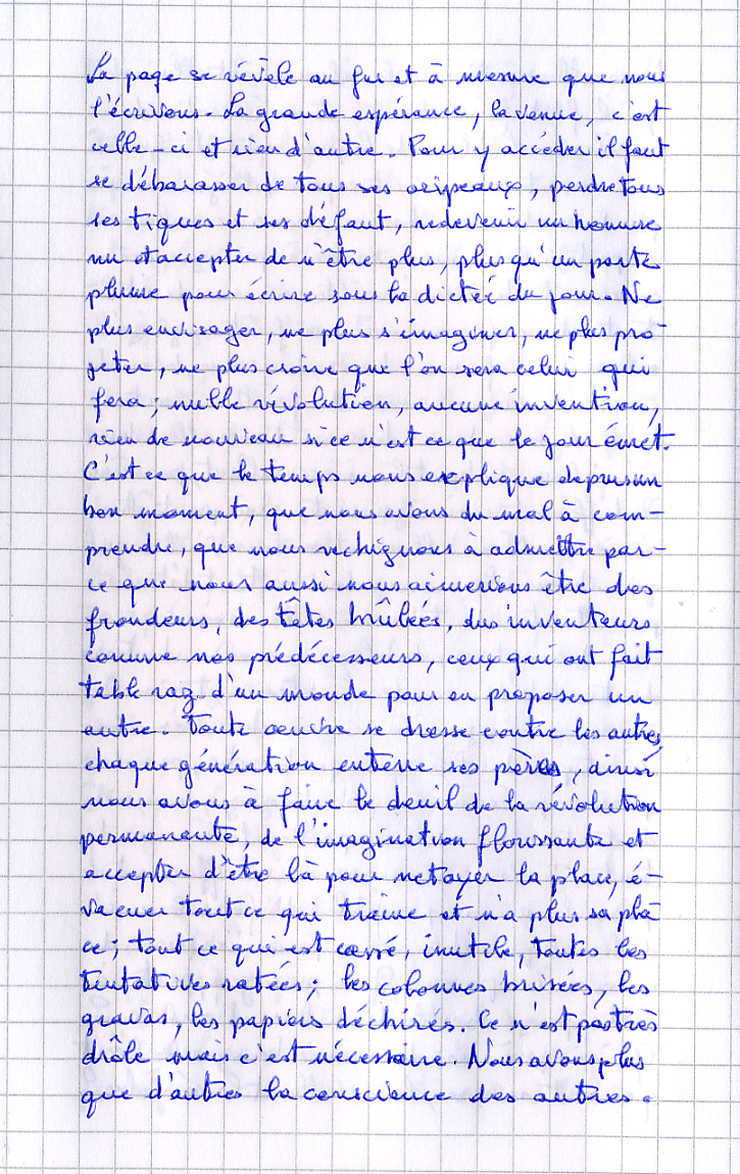 La page se révèle au fur et à mesure que nous
l'écrivons. La grande espérance, la venue, c'est
celle-ci et rien d'autre. Pour y accéder il faut
se débarasser de tous ses oripeaux, perdre tous
ses tiques et ses défaut, redevenir un homme
nu et accepter de n'être plus, plus qu'un porte
plume pour écrire sous la dicteé du jour. Ne
plus envisager, ne plus s'imaginer, ne plus pro
jeter, ne plus croire que l'on sera celui qui
fera; nulle révolution, aucune invention,
rien de nouveau si ce n'est ce que le jour émet.
C'est ce que le temps nous explique depuis un
bon moment, que nous avons du mal à com-
prendre, que nous rechignons à admettre par-
ce que nous aussi nous aimerions être des
frondeurs, des têtes brûleés, des inventeurs
comme nos prédécesseurs, ceux qui ont fait
table raz d'un monde pour en proposer un
autre. Toute oeuvre se dresse contre les autres,
chaque génération enterre ses pères, ainsi
nous avons à faire le deuil de la révolution
permanente, de l'imagination flourssante et
accepter d'être là pour netoyer la place, é-
vacuer tout ce qui traine et n'a plus sa pla
ce; tout ce qui est cassé, inutile, toutes les
tentatives ratées; les colonnes brisées, les
gravas, les papiers déchirés. Ce n'est pas très
drôle mais c'est nécessaire. Nous avons plus
que d'autres la conscience des autres.